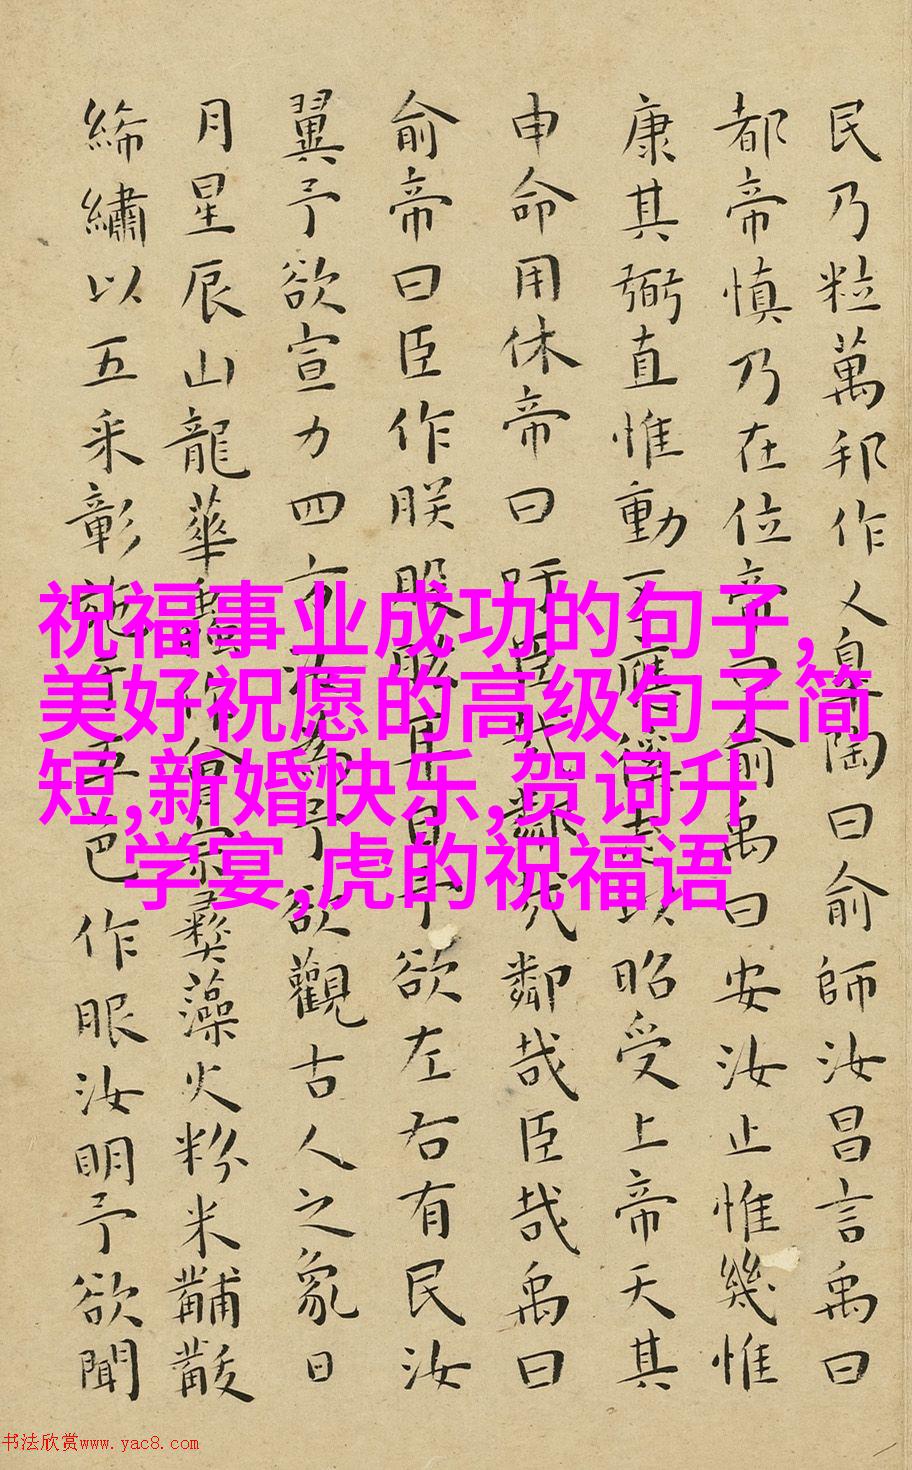 民乃粒萬邦作乂皋陶曰俞師汝昌言禹曰
都帝慎乃在位帝曰俞禹曰安汝止惟幾惟
康其弼直惟動丕應徯志以昭受上帝天其
申命用休帝曰吁臣哉鄰哉鄰哉臣哉禹曰
俞帝曰臣作朕股肱耳目予欲左右有民汝
翼予欲宣力四方汝為予欲觀古人之象日
月星辰山龍華蟲作會宗彝藻火粉米黼黻
絺繡以五采彰施于五色作服汝明予欲聞
祝福事业成功的句子,
美好祝愿的高级句子简
短,新婚快乐,贺词升
学宴,虎的祝福语
书法欣赏www.yac8.com